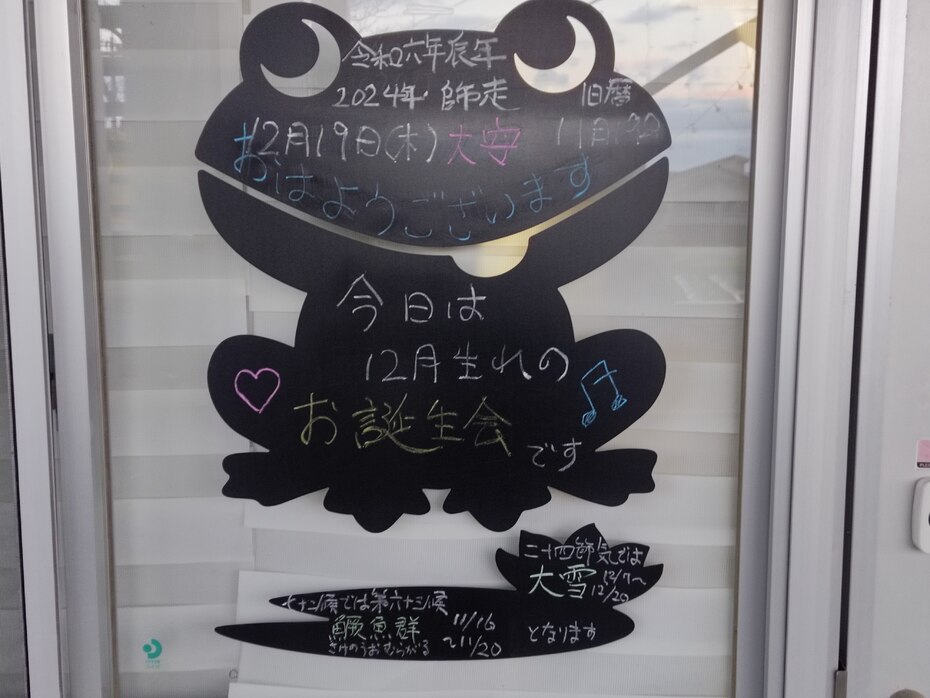 令和六年辰年
2024年 師走 旧暦
12月19日(木)大安 11月19日
おはようございます
今日は
12月生れの
お誕生会
です
二十四節気では
大雪 12/7～
12/20
七十二候では第六十三候
鱖魚群 11/16
さけのうおむらがる ～11/20
となります